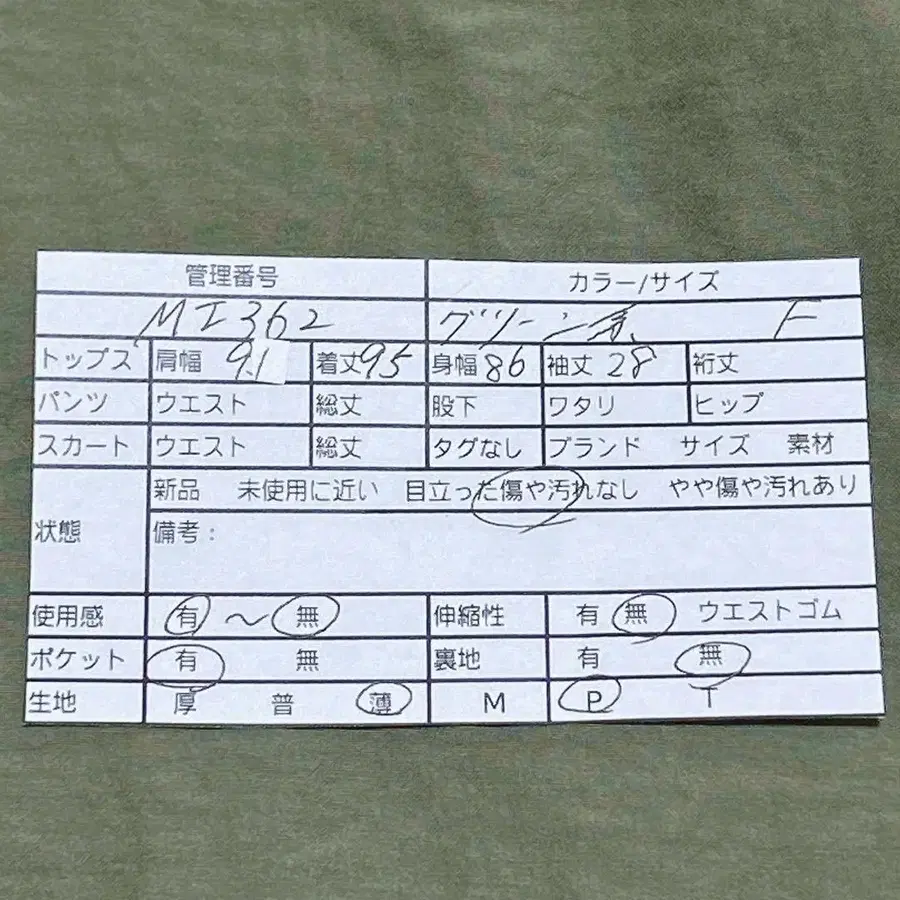 管理番号 カラー/サイズ
MI362 グリーン系 F
トップス 肩幅 91 着丈 95 身幅 86 袖丈 28 裄丈
パンツ ウエスト 総丈 股下 ワタリ ヒップ
スカート ウエスト 総丈 タグなし ブランド サイズ 素材
新品 未使用に近い 目立った傷や汚れなし やや傷や汚れあり
状態 備考：
使用感 有 〜 無 伸縮性 有 無 ウエストゴム
ポケット 有 無 裏地 有 無
生地 厚 普 薄 M P T